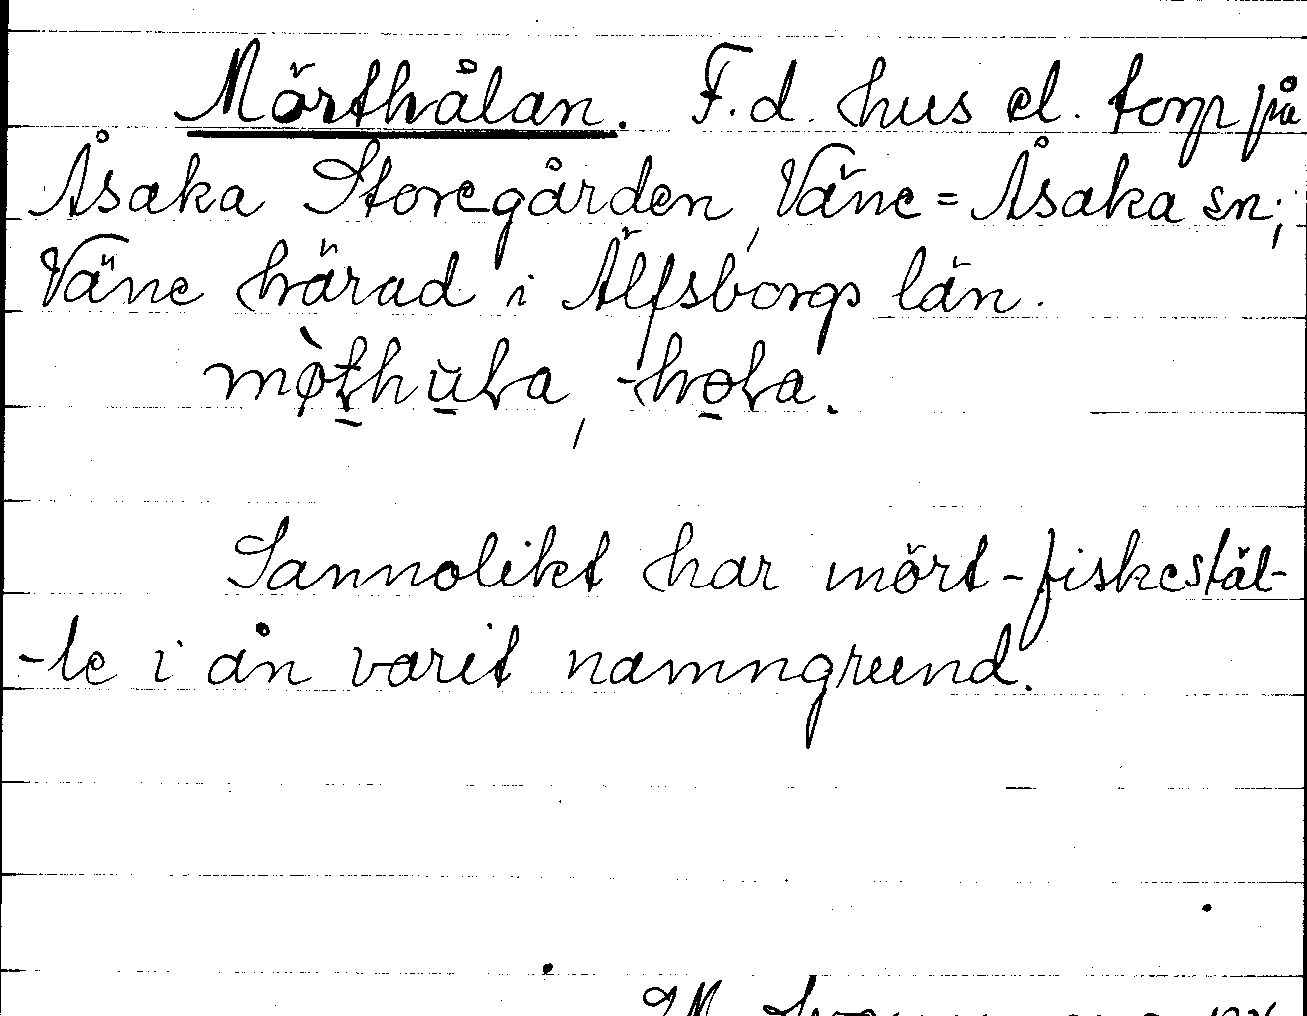 Mörthålan. F.d. hus el. torp på
Åsaka Storegården, Väne=Åsaka sn;
Väne härad i Älfsborgs län.
mø̀t̠hu̠ɫa, -ho̠ɫa.
Sannolikt har mört-fiskestäl-
-le i ån varit namngrund.